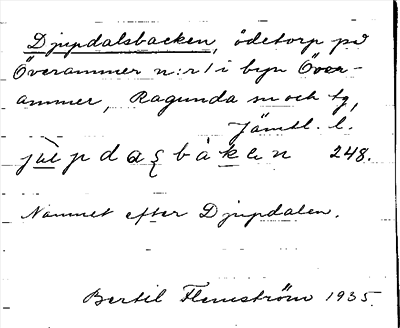 Djupdalsbacken, ödetorp på
Överammer n:r 1 i byn Över-
ammer, Ragunda sn och tg,
Jämtl. l.
248.
Namnet efter Djupdalen.
Bertil Flemström 1935.